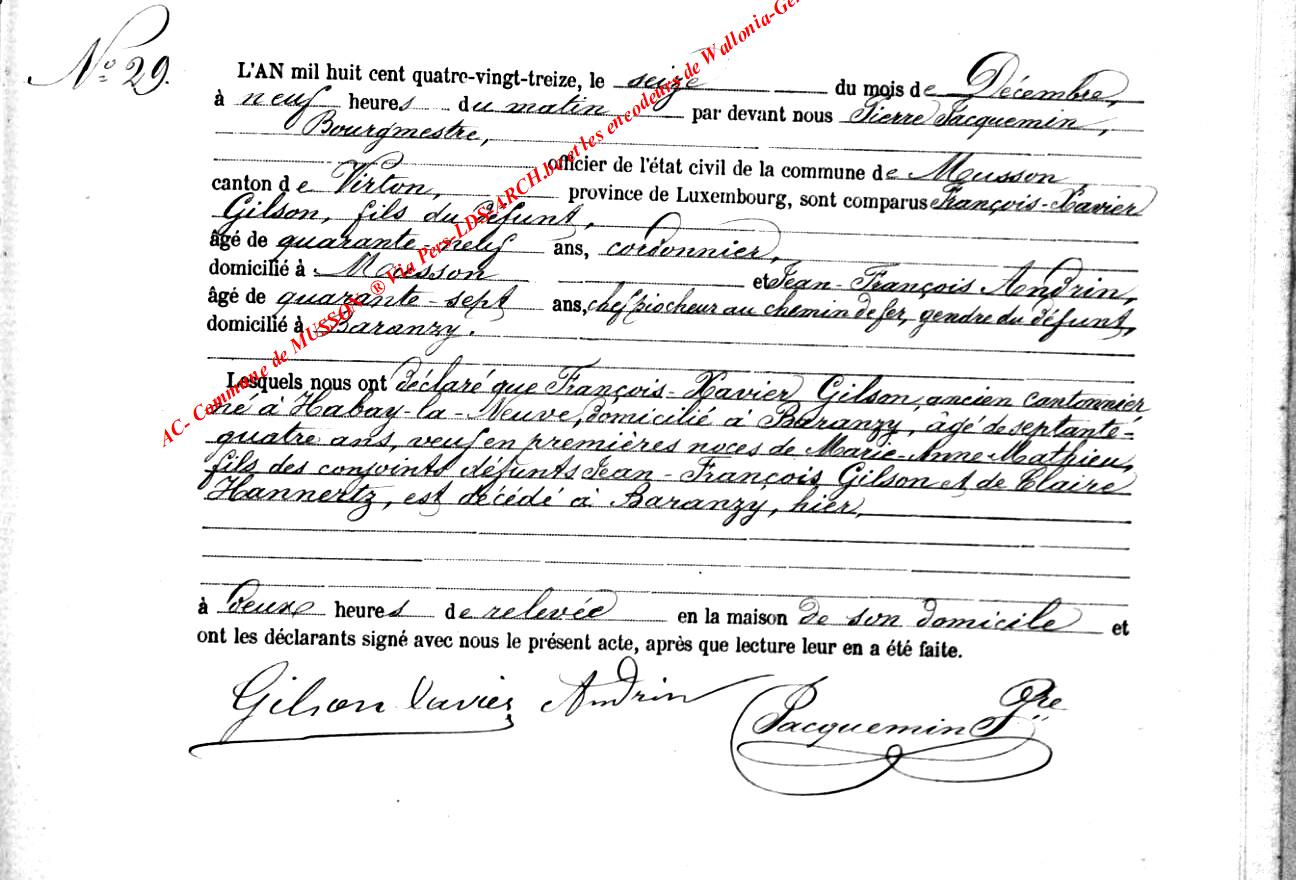 N° 29.
L'AN mil huit cent quatre-vingt-treize, le seize du mois de Décembre,
à neuf heures du matin par devant nous Pierre Jacquemin,
Bourgmestre,
officier de l'état civil de la commune de Musson,
canton de Virton, province de Luxembourg, sont comparus François-Xavier
Gilson, fils du défunt,
âgé de quarante-neuf ans, cordonnier,
domicilié à Musson et Jean-François Andrin,
âgé de quarante-sept ans, chef piocheur au chemin de fer, gendre du défunt,
domicilié à Baranzy.
Lesquels nous ont déclaré que François-Xavier Gilson, ancien cantonnier
né à Habay-la-Neuve, domicilié à Baranzy, âgé de septante-
quatre ans, veuf en premières noces de Marie-Anne Mathieu,
fils des conjoints défunts Jean-François Gilson et de Claire
Hannertz, est décédé à Baranzy, hier,
à deux heures de relevée en la maison de son domicile et
ont les déclarants signé avec nous le présent acte, après que lecture leur en a été faite.
Gilson Xavier Andrin Jacquemin Pre
AC- Commune de MUSSON ® Via Pers-LDS-ARCH.be et les encodeurs de Wallonia-Ge